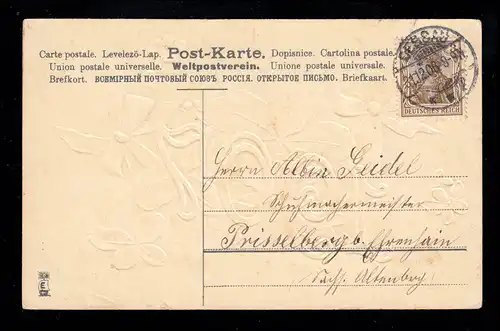 Carte postale. Levelező-Lap. Post-Karte. Dopisnice. Cartolina postale.
Union postale universelle. Weltpostverein. Unione postale universale.
Brefkort. ВСЕМІРНЫЙ ПОЧТОВЫЙ СОЮЗЪ РОССІЯ. ОТКРЫТОЕ ПИСЬМО. Briefkaart.
DEUTSCHES REICH
Herrn Albin Geidel
Schuhmachermeister
Prisselberg b. Ehrenhain
Sachs. Altenberg